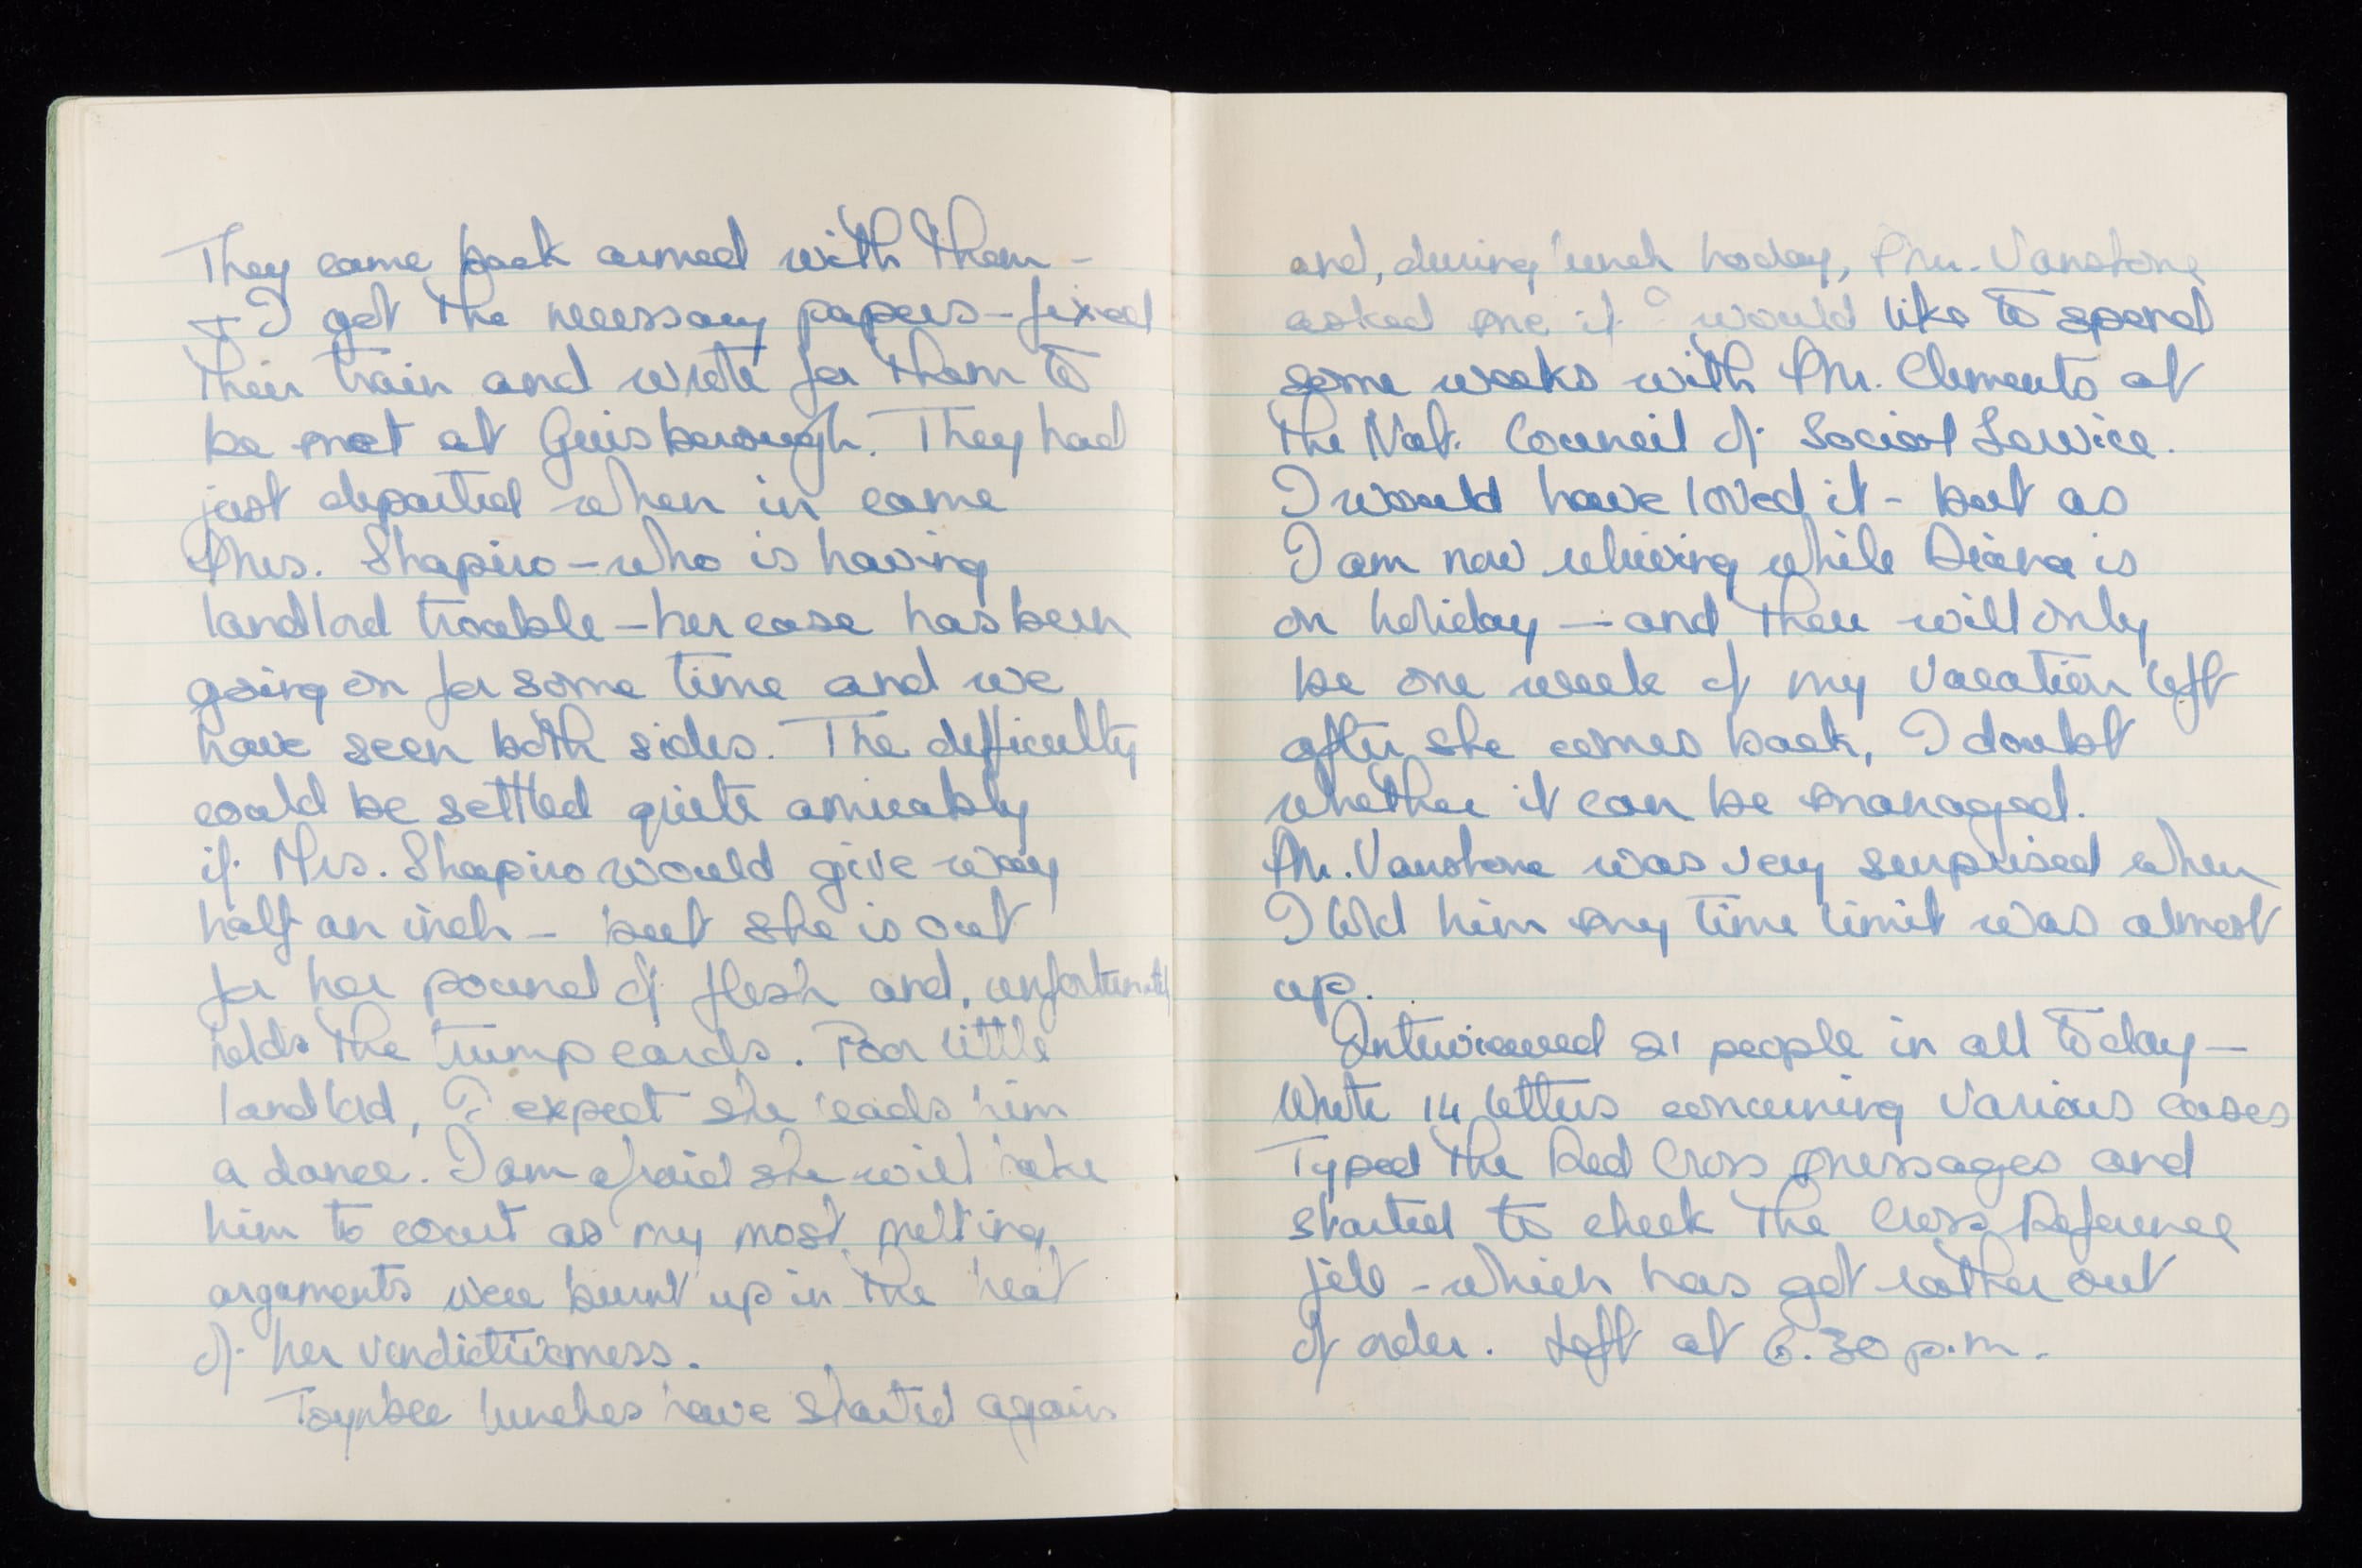 They came back armed with them -
+ I got the necessary papers - fixed
their train and wrote for them to
be met at Guisborough. They had
just departed when in came
Mrs. Shapiro - who is having
landlord trouble - her case has been
going on for some time and we
have seen both sides. The difficulty
could be settled quite amicably
if Mrs. Shapiro would give way
half an inch - but she is out
for her pound of flesh and, unfortunately
holds the trump cards. Poor little
landlord, I expect she leads him
a dance. I am afraid she will take
him to court as my most melting
arguments were burnt up in the heat
of her vindictiveness.
Toynbee lunches have started again
and, during lunch today, Mr. Vanstone
asked me if I would like to spend
some weeks with Mr. Clements at
the Nat. Council of Social Service.
I would have loved it - but as
I am now relieving while Diana is
on holiday - and there will only
be one week of my vacation left
after she comes back, I doubt
whether it can be managed.
Mr. Vanstone was very surprised when
I told him my time limit was almost
up.
Interviewed 21 people in all today -
Wrote 14 letters concerning various cases
Typed the Red Cross messages and
started to check the Cross Reference
file - which has got rather out
of order. Left at 6.30 p.m.